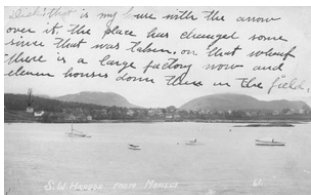 that is my house with the arrow
over it. the place has changed some
since that was taken. on that wharf
there is a large factory now and
eleven houses down there in the field.
S.W. HARBOR FROM MANSET